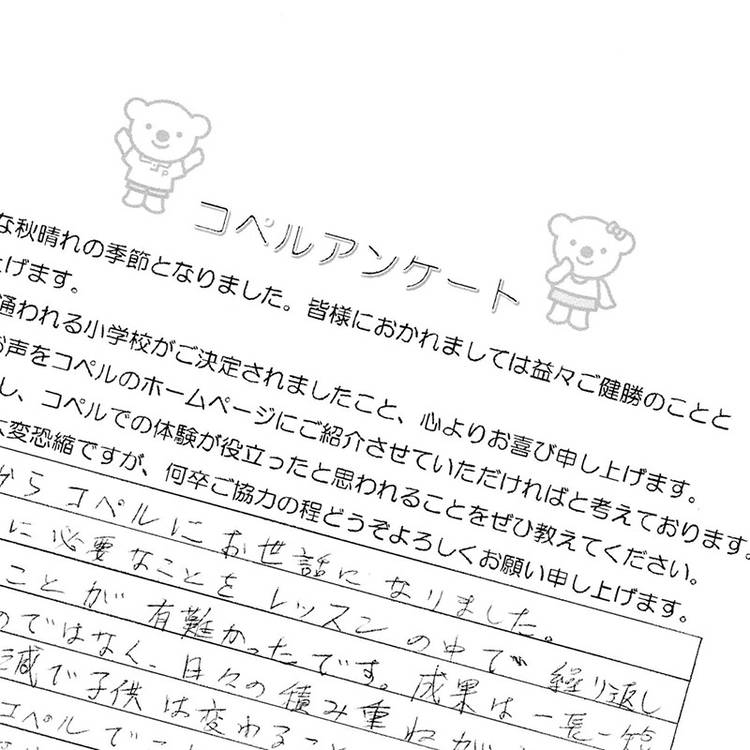 コペルアンケート
な秋晴れの季節となりました。皆様におかれましては益々ご健勝のことと
上げます。
通われる小学校がご決定されましたこと、心よりお喜び申し上げます。
お声をコペルのホームページにご紹介させていただければと考えております。
し、コペルでの体験が役立ったと思われることをぜひ教えてください。
大変恐縮ですが、何卒ご協力の程どうぞよろしくお願い申し上げます。
からコペルにお世話になりました。
に必要なことをレッスンの中で繰り返し
ことが有難かったです。成果は一長一
のではなく、日々の積み重ねが
減で子供は変わること
コペルで